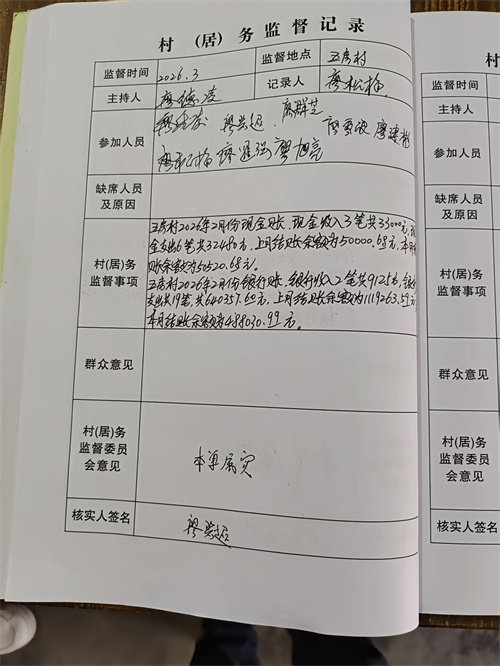 村（居）务监督记录
监督时间 2026.3 监督地点 五房村
主持人 廖德凌 记录人 廖松梅
参加人员
廖兴远 廖群芝
廖建彬
廖旭亮
缺席人员
及原因
村(居)务
监督事项
五房村2026年2月份现金账、现金收入3笔共33000元,现
金支出6笔共32480元,上月结账余额为50000.68元,本月结
账余额为50520.68元。
五房村2026年2月份银行账,银行收入2笔共9125元,银行
支出共19笔,共640357.60元,上月结账余额为1119263.59元
本月结账余额为488030.99元。
群众意见
村(居)务
监督委员
会意见
本单属实
核实人签名
廖兴远
村
监督时间
主持人
参加人员
缺席人员
及原因
村(居)务
监督事项
群众意见
村(居)务
监督委员
会意见
核实人签名